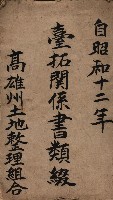 自昭和十二年
臺拓關係書類綴
高雄州土地整理組合